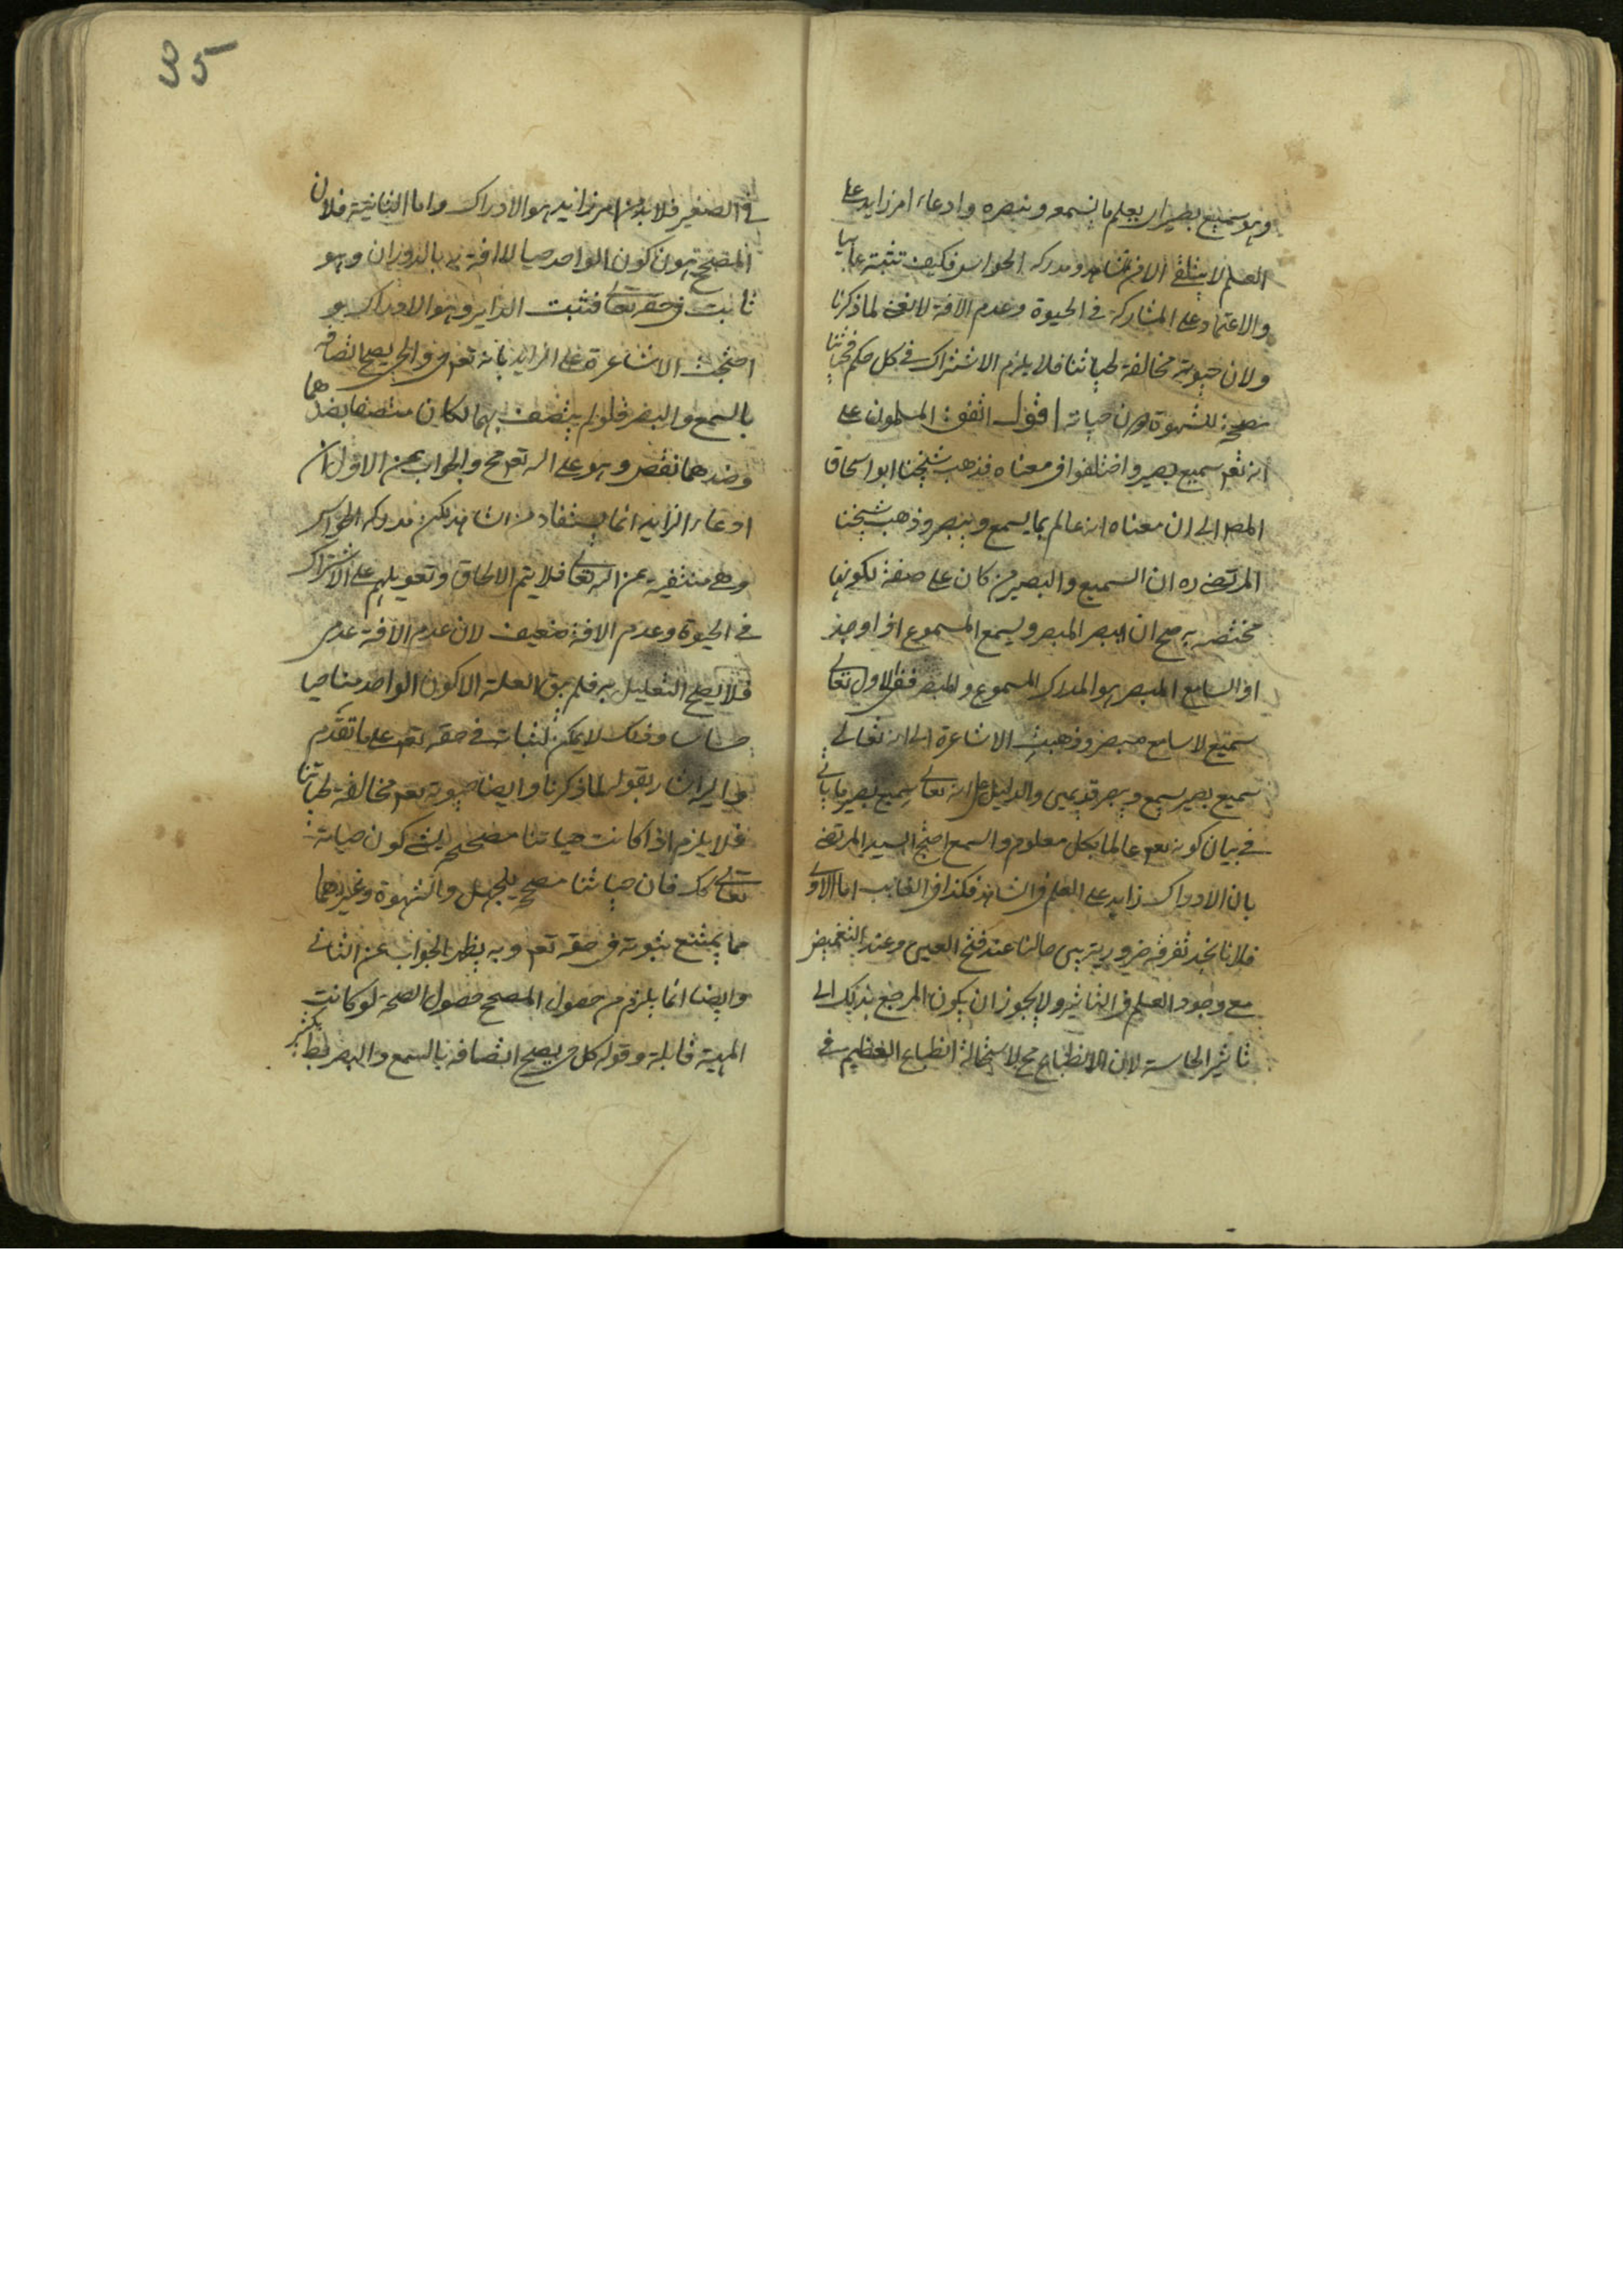 وهو سميع بصير اي يعلم ما نسمعه ونبصره وادعاء امر زايد على
العلم لا يتلقى الا من الشاهد ومدركه الحواس فكيف تثبته غايبا
والاعتماد على المشاركة في الحيوة وعدم الافة لا يغني لما ذكرنا
ولان حيوته مخالفة لحياتنا فلا يلزم الاشتراك في كل حكم فحياتنا
تصحح للشهوة دون حياته اقول اتفق المسلمون على
انه تعم سميع بصير واختلفوا في معناه فذهب شيخنا ابو اسحاق
المص الى ان معناه انه عالم بما يسمع ويبصر وذهب شيخنا
المرتضى ره ان السميع والبصير من كان على صفة لكونها
مختصه به صح ان يبصر المبصر ويسمع المسموع اذا وجد
اذ السامع المبصر هو المدرك المسموع والمبصر ففي الاول تعالى
سميع لا سامع مبصر وذهبت الاشاعرة الى انه تعالى
سميع بصير بسمع وبصر قديمين والدليل على انه تعالى سميع بصير ما ياتي
في بيان كونه تعم عالما بكل معلوم والسمع احتج السيد المرتضى
بان الادراك زايد على العلم في الشاهد فكذا في الغايب اما الاولى
فلانا نجد تفرقة ضرورية بين حالنا عند فتح العين وعند التغميض
مع وجود العلم في الثاني ولا يجوز ان يكون المرجع بذلك الى
تاثير الحاسة لان الانطباع مح لاستحالة انطباع العظيم في
35
في الصغير فلا بد من امر زايد هو الادراك واما الثانية فلان
المصحح هو ن كون الواحد حيا لا افة به بالدوران وهو
ثابت في حقه تعالى فثبت الداير وهو الادراك و
احتجت الاشاعرة على الزايد بانه تعم حي والحي يصح اتصافه
بالسمع والبصر فلو لم يتصف بهما لكان متصفا بضدهما
وضدهما نقص وهو على الله تعم مح والجواب عن الاول ان
ادعاء الزايد انما يستفاد من الشاهد لكن مدركه الحواس
وهي منتفية عن الله تعالى فلا يتم الالحاق وتعويلهم على الاشتراك
في الحيوة وعدم الافة ضعيف لان عدم الافة عدمي
فلا يصح التعليل به فلم يبق العلة الا كون الواحد منا حيا
حساسا وذلك لا يمكن اثباته في حقه تعم على ما تقدم
واليه اشار بقوله لما ذكرنا وايضا حيوته تعم مخالفة لحياتنا
فلا يلزم اذا كانت حياتنا مصححة لشئ كون حياته
تعالى كك فان حياتنا مصححة للجهل والشهوة وغيرهما
مما يمتنع ثبوته في حقه تعم وبه يظهر الجواب عن الثاني
وايضا انما يلزم من حصول المصحح حصول الصحة لو كانت
المهية قابلة وقوله كل حي يصح اتصافه بالسمع والبصر بط